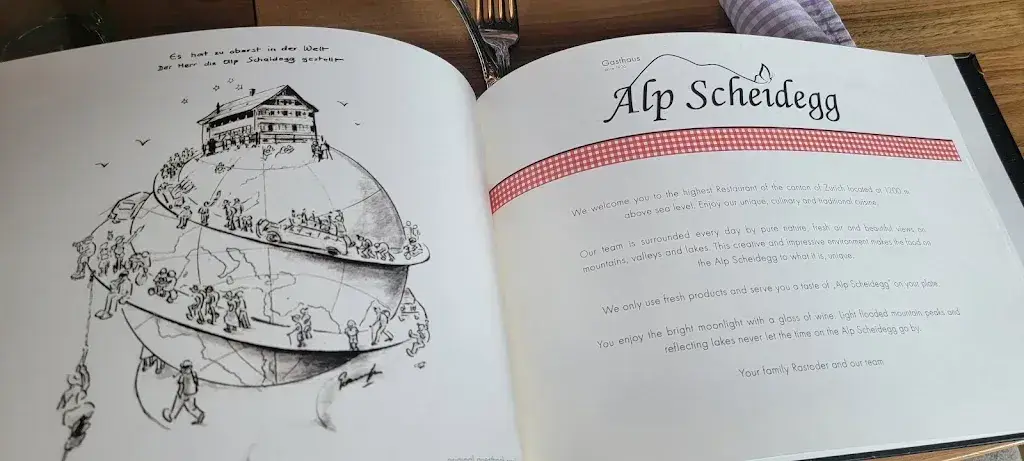 Es hat zu oberst in der Welt
Der Herr die Alp Scheidegg gestellt
Gasthaus
Alp Scheidegg
We welcome you to the highest Restaurant of the canton of Zurich located at 1200 m
above sea level. Enjoy our unique, culinary and traditional cuisine.
Our team is surrounded every day by pure nature, fresh air and beautiful views on
mountains, valleys and lakes. This creative and impressive environment makes the food on
the Alp Scheidegg to what it is, unique.
We only use fresh products and serve you a taste of „Alp Scheidegg" on your plate.
You enjoy the bright moonlight with a glass of wine. Light flooded mountain peaks and
reflecting lakes never let the time on the Alp Scheidegg go by.
Your family Rastoder and our team